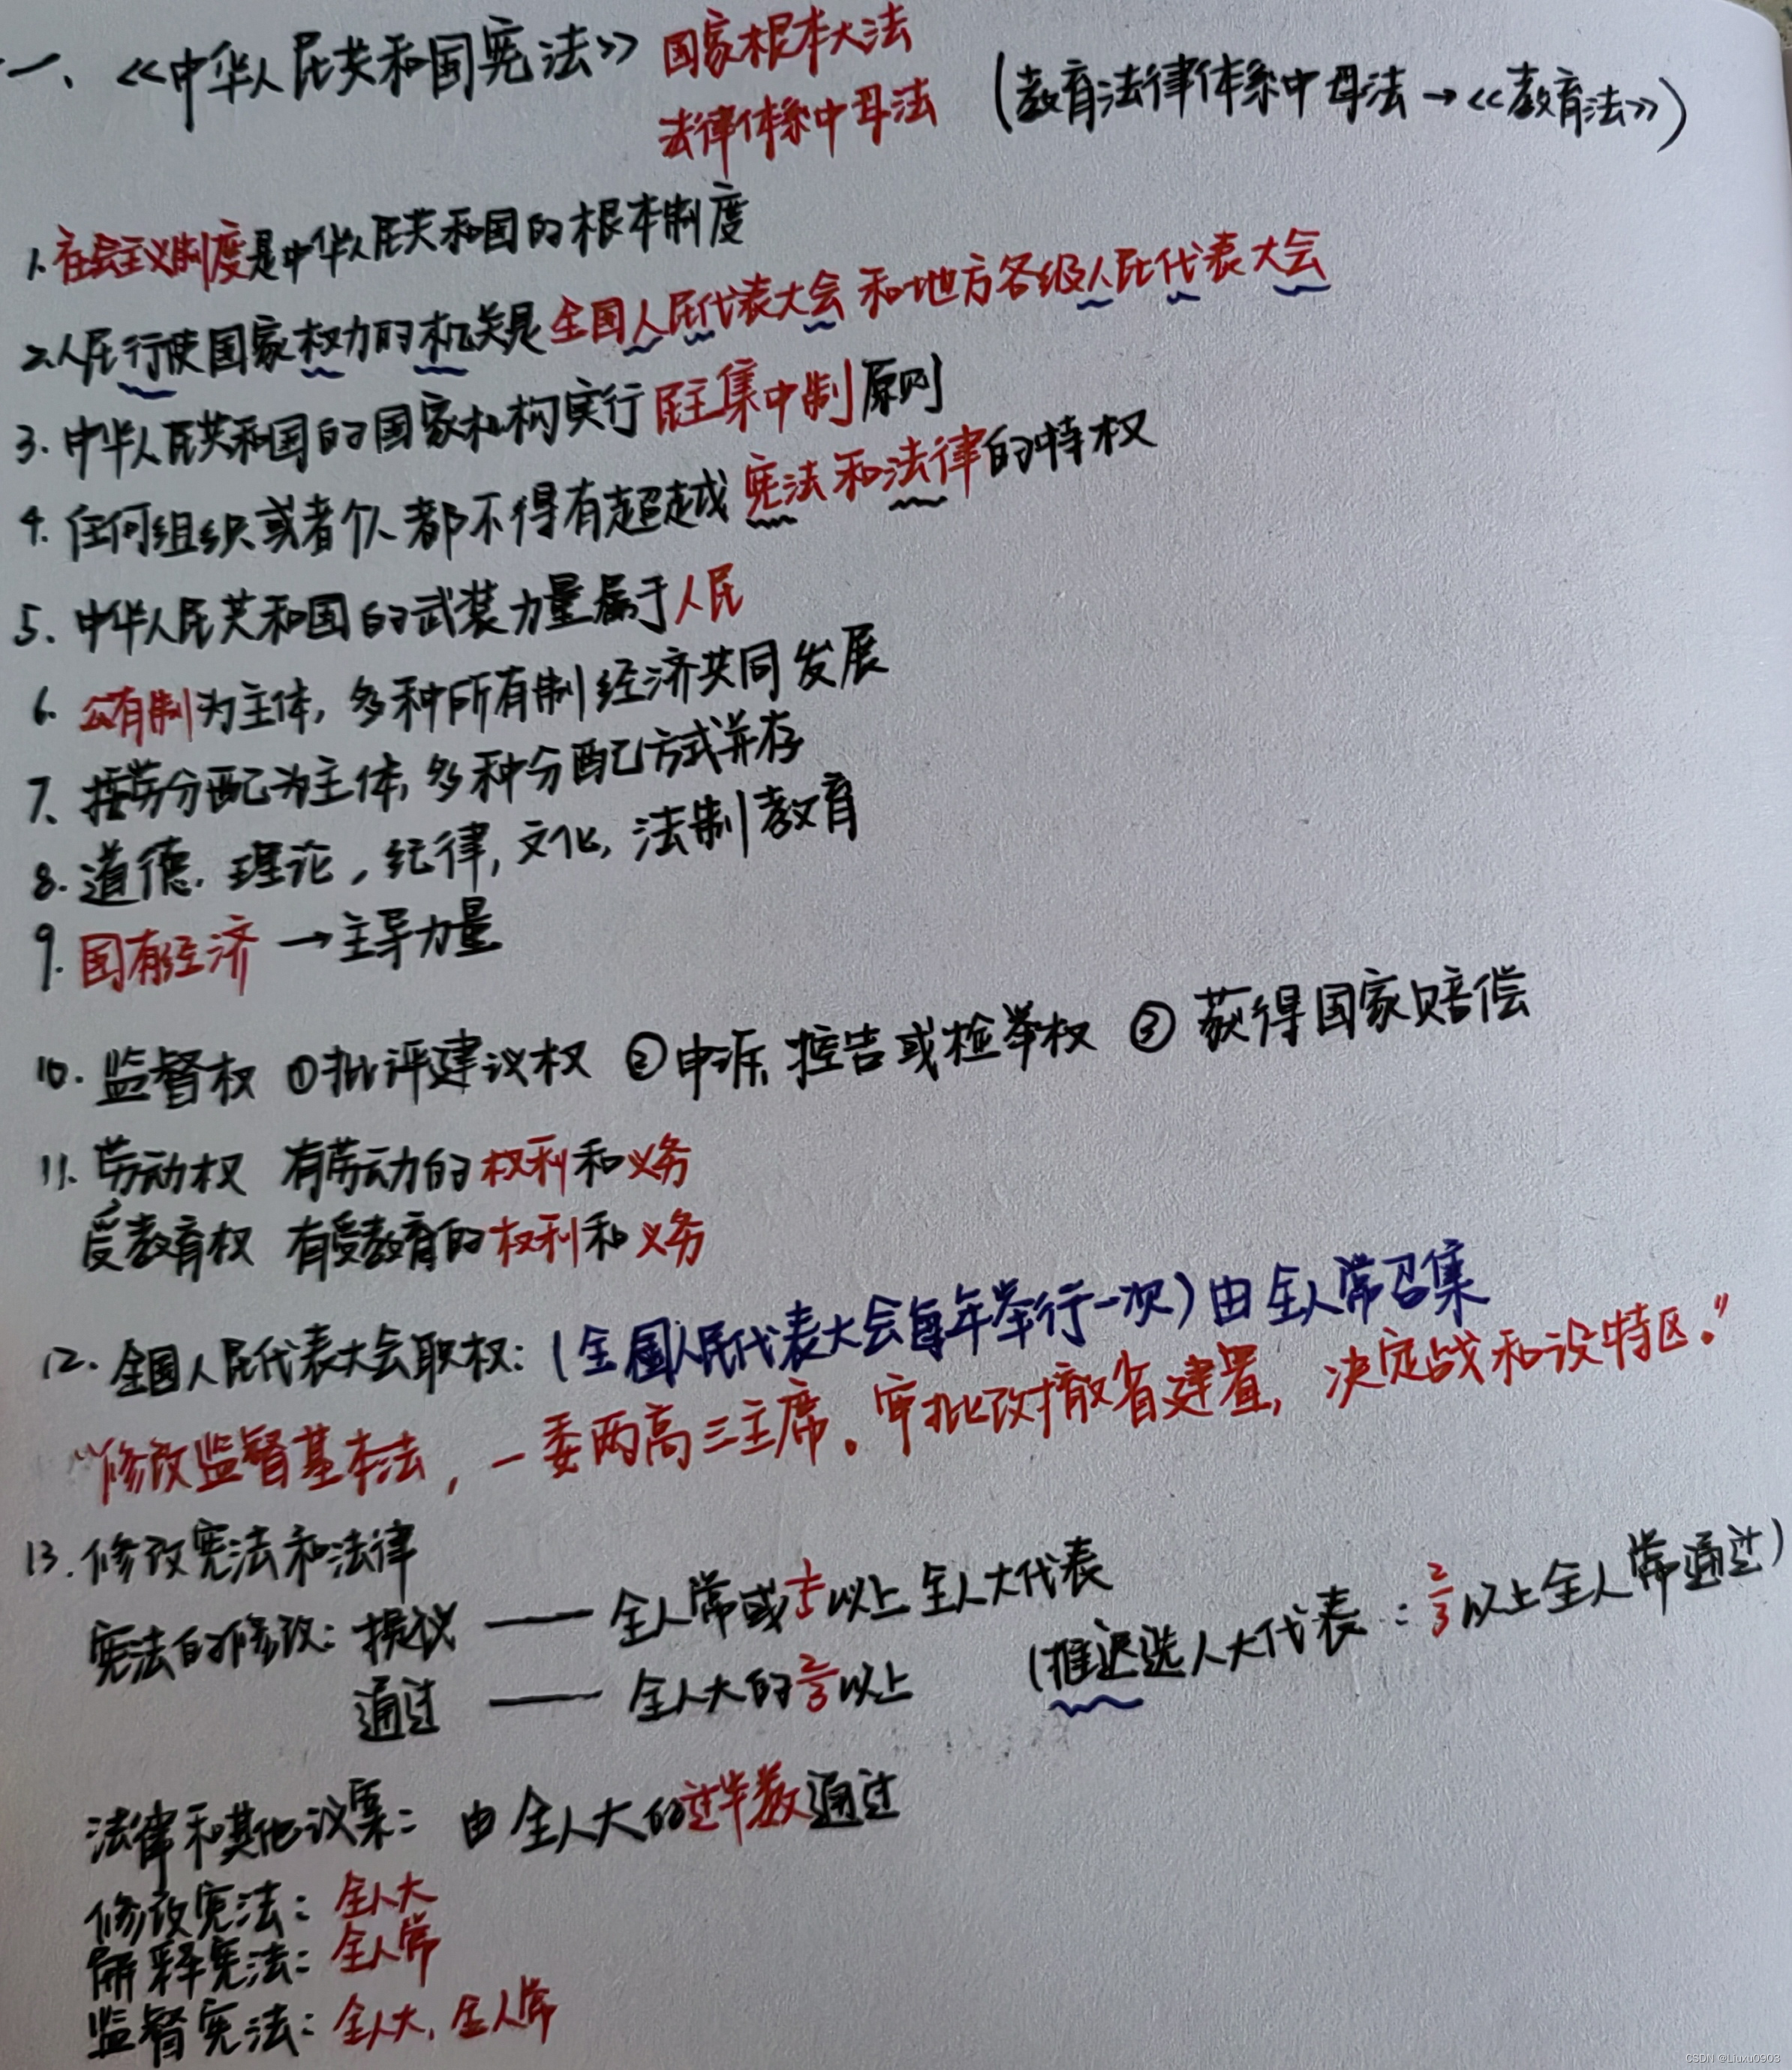 一、《中华人民共和国宪法》 国家根本大法
法律体系中母法 (教育法律体系中母法→《教育法》)
1. 社会主义制度是中华人民共和国的根本制度
2. 人民行使国家权力的机关是全国人民代表大会和地方各级人民代表大会
3. 中华人民共和国的国家机构实行民主集中制原则
4. 任何组织或者个人都不得有超越宪法和法律的特权
5. 中华人民共和国的武装力量属于人民
6. 公有制为主体,多种所有制经济共同发展
7. 按劳分配为主体,多种分配方式并存
8. 道德、理论,纪律,文化,法制教育
9. 国有经济→主导力量
10. 监督权 ①批评建议权 ②申诉、控告或检举权 ③获得国家赔偿
11. 劳动权 有劳动的权利和义务
受教育权 有受教育的权利和义务
12. 全国人民代表大会职权:(全国人民代表大会每年举行一次)由全人常召集
“修改监督基本法,一委两高三主席。审批改撤省建置,决定战和设特区。”
13. 修改宪法和法律
宪法的修改:提议——全人常或1/5以上全人大代表
通过——全人大的2/3以上 (推迟选人大代表:2/3以上全人常通过)
法律和其他议案:由全人大的过半数通过
修改宪法:全人大
解释宪法:全人常
监督宪法:全人大,全人常
CSDN @Liuxu0908